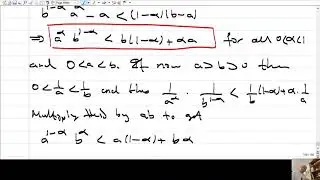 b^{1-α} a^α - a < (1-α)(b-a)
⇒ a^α b^{1-α} < b(1-α) + αa for all 0<α<1
and 0<a<b. If now a>b>0 then
0 < 1/a < 1/b and thus 1/a^α · 1/b^{1-α} < 1/b (1-α) + α · 1/a
Multiply this by ab to get
a^{1-α} b^α < a(1-α) + bα